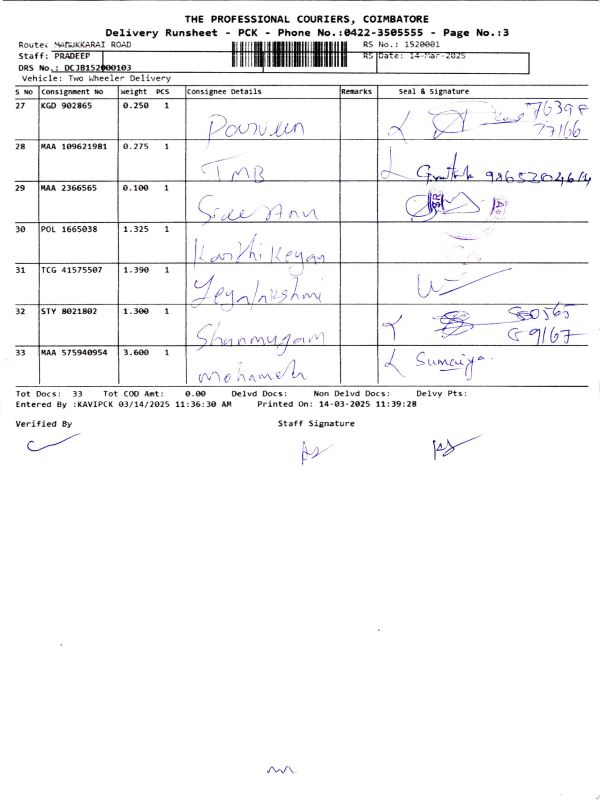 THE PROFESSIONAL COURIERS, COIMBATORE
Delivery Runsheet - PCK - Phone No.:0422-3505555 - Page No.:3
Route: MADUKKARAI ROAD RS No.: 1520001
Staff: PRADEEP RS Date: 14-Mar-2025
DRS No.: DCJB152000103
Vehicle: Two Wheeler Delivery
S No Consignment No Weight PCS Consignee Details Remarks Seal & Signature
27 KGD 902865 0.250 1 Parveen
28 MAA 109621981 0.275 1 TMB
29 MAA 2366565 0.100 1
30 POL 1665038 1.325 1 Karthikeyan
31 TCG 41575507 1.390 1 Jeyalakshmi
32 STY 8021802 1.300 1 Shanmugam
33 MAA 575940954 3.600 1 mohamed Sumaiya.
Tot Docs: 33 Tot COD Amt: 0.00 Delvd Docs: Non Delvd Docs: Delvy Pts:
Entered By :KAVIPCK 03/14/2025 11:36:30 AM Printed On: 14-03-2025 11:39:28
Verified By Staff Signature